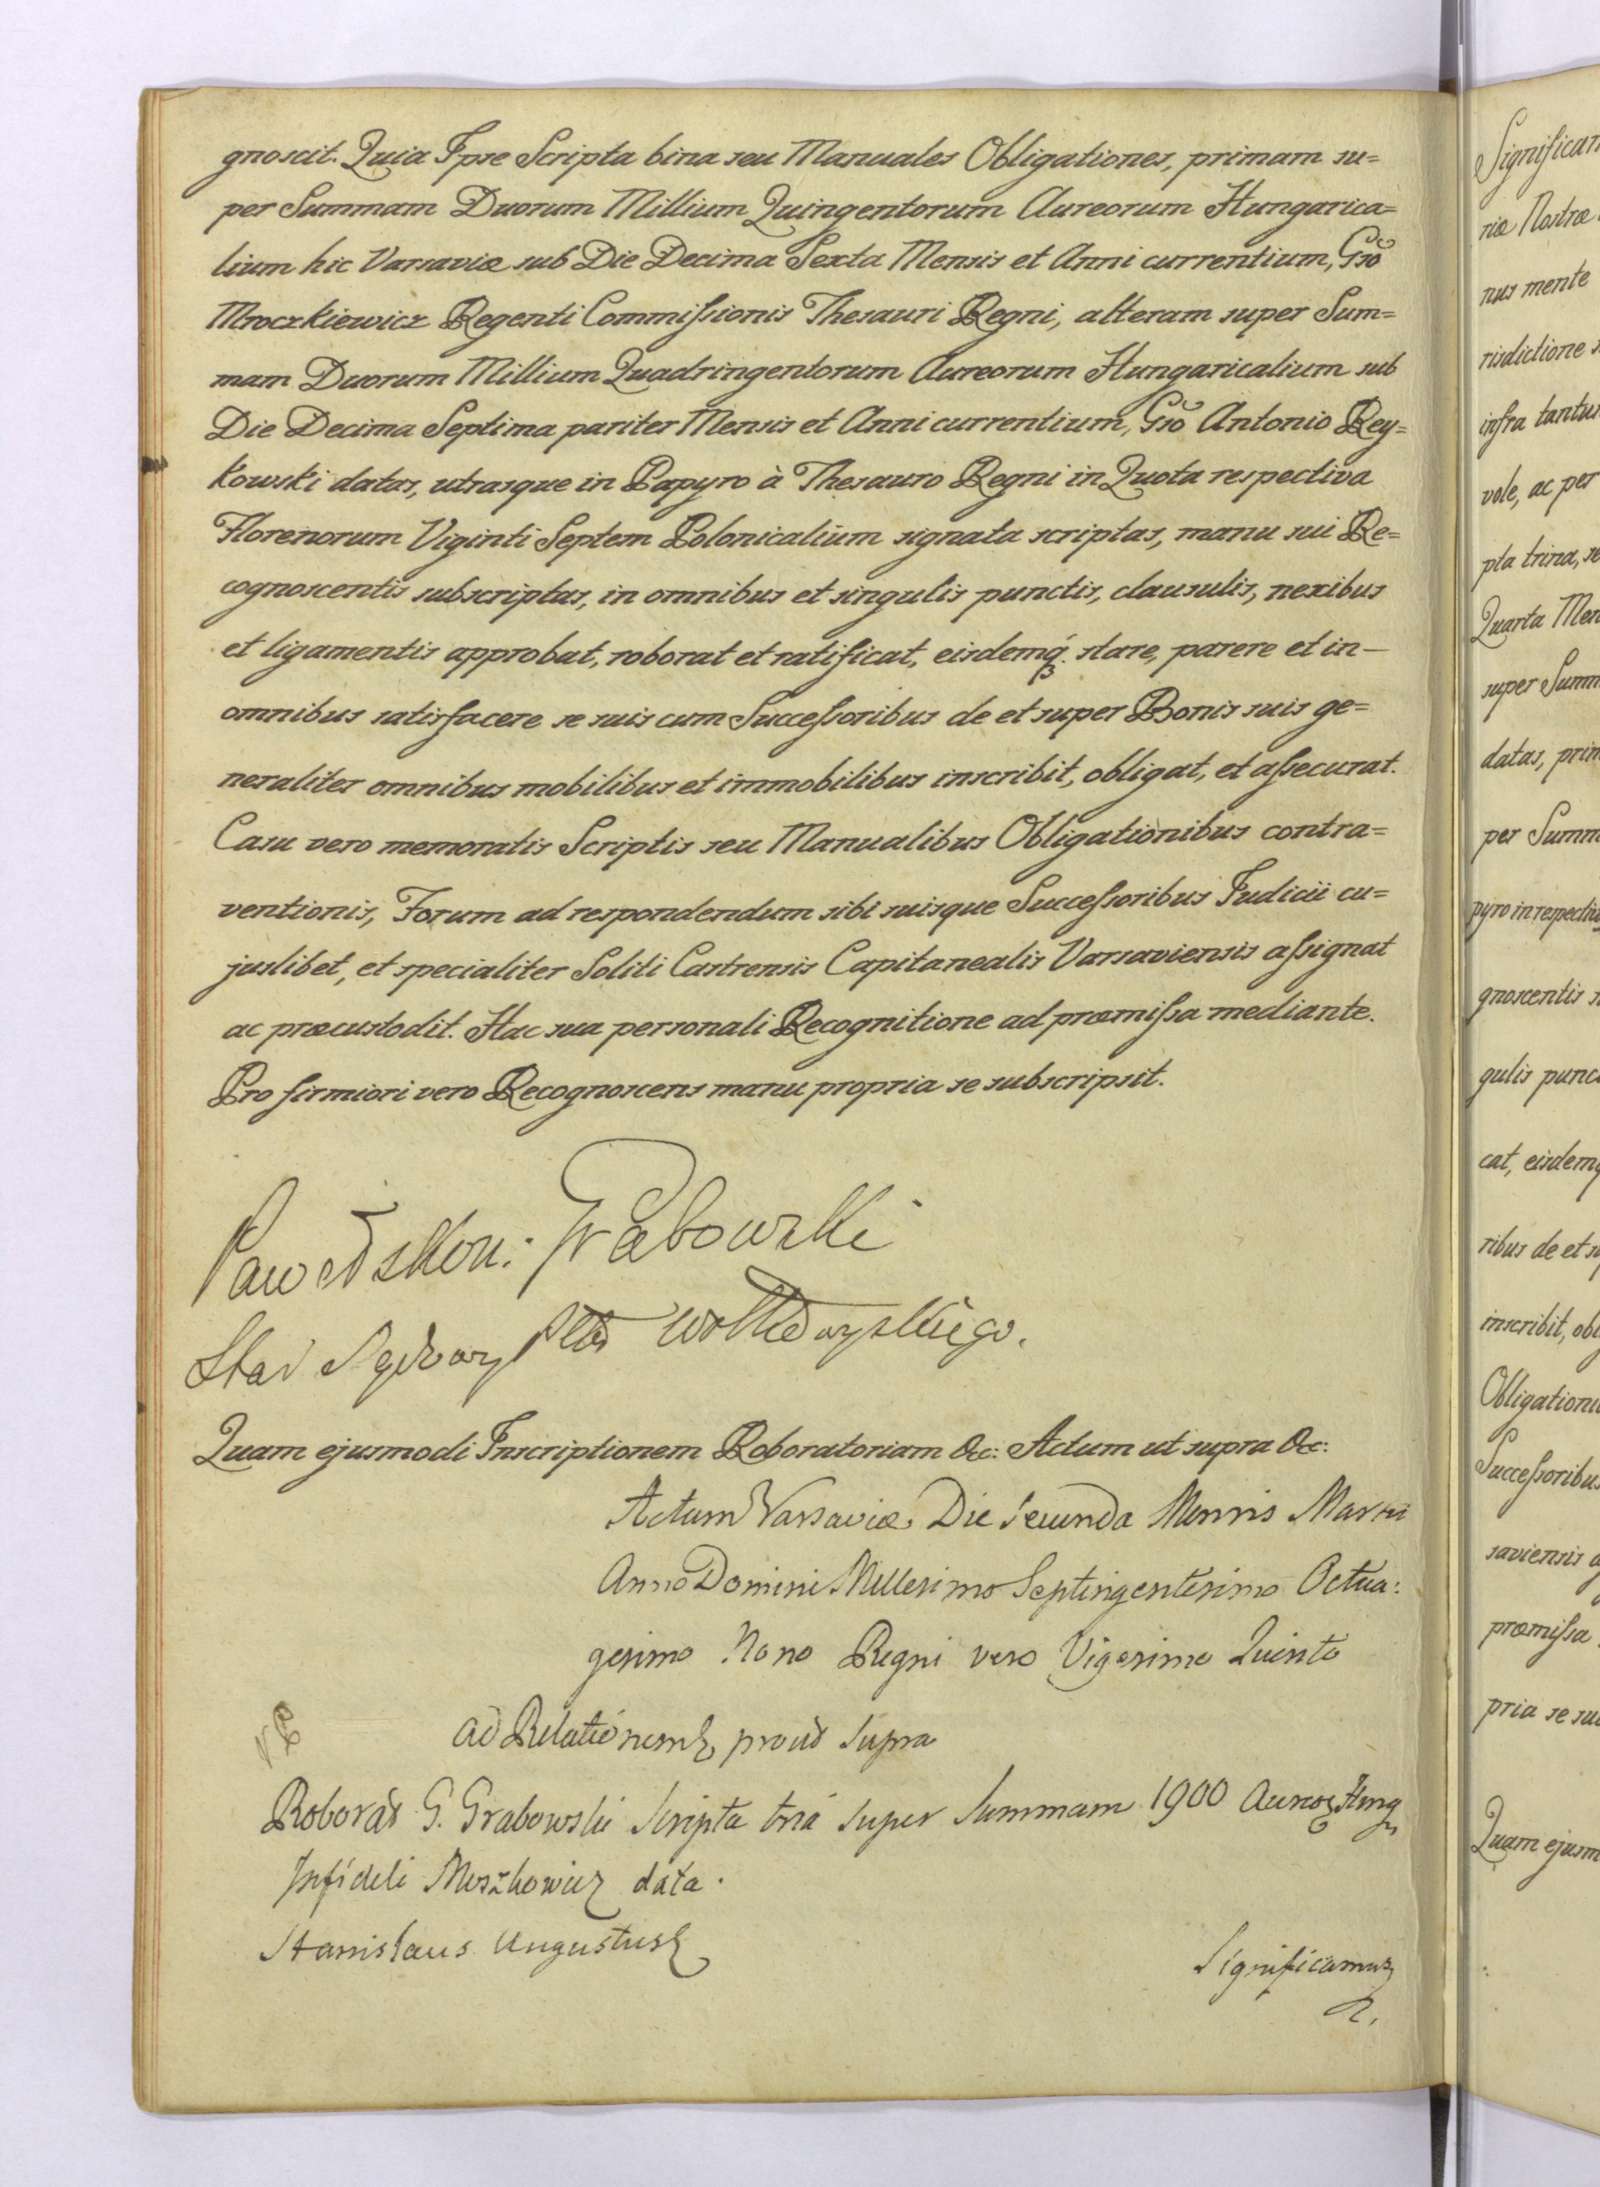 gnoscit. Quia Ipse Scripta bina seu Manuales Obligationes, primam su=
per Summam Duorum Millium Quingentorum Aureorum Hungarica=
lium hic Varsaviæ sub Die Decima Sexta Mensis et Anni currentium, Gso
Mroczkiewicz Regenti Commissionis Thesauri Regni, alteram super Sum=
mam Duorum Millium Quadringentorum Aureorum Hungaricalium sub
Die Decima Septima pariter Mensis et Anni currentium, Gso Antonio Rey=
kowski datas, utrasque in Papyro à Thesauro Regni in Quota respectiva
Florenorum Viginti Septem Polonicalium signata scriptas, manu sui Re=
cognoscentis subscriptas, in omnibus et singulis punctis, clausulis, nexibus
et ligamentis approbat, roborat et ratificat, eisdemq. stare, parere et in
omnibus satisfacere se suis cum Successoribus de et super Bonis suis ge=
neraliter omnibus mobilibus et immobilibus inscribit, obligat, et assecurat.
Casu vero memoratis Scriptis seu Manualibus Obligationibus contra=
ventionis, Forum ad respondendum sibi suisque Successoribus Judicii cu=
juslibet, et specialiter Soliti Castrensis Capitanealis Varsaviensis assignat
ac præcustodit. Hac sua personali Recognitione ad præmissa mediante.
Pro firmiori vero Recognoscens manu propria se subscripsit.
Grabowski
Quam ejusmodi Inscriptionem Roboratoriam &c: Actum ut supra &c:
Actum Varsaviæ Die Secunda Mensis Martii
Anno Domini Millesimo Septingentesimo Octua:
gesimo Nono Regni vero Vigesimo Quinto
ad Relationem prout supra
Roborat G. Grabowski Scripta tria super Summam 1900 Hung
Infideli Moszkowicz data.
Stanislaus Augustus
Significamus
Significam
riæ Nostræ
nus mente
risdictione
infra tantu
vole, ac per
pta trina, se
Quarta Men
super Summ
datas, prim
per Summ
pyro in respectiv
gnoscentis
gulis punc
cat, eisdemq
ribus de et su
inscribit, obl
Obligationi
Successoribus
saviensis
præmissa
pria se su
Quam ejusm